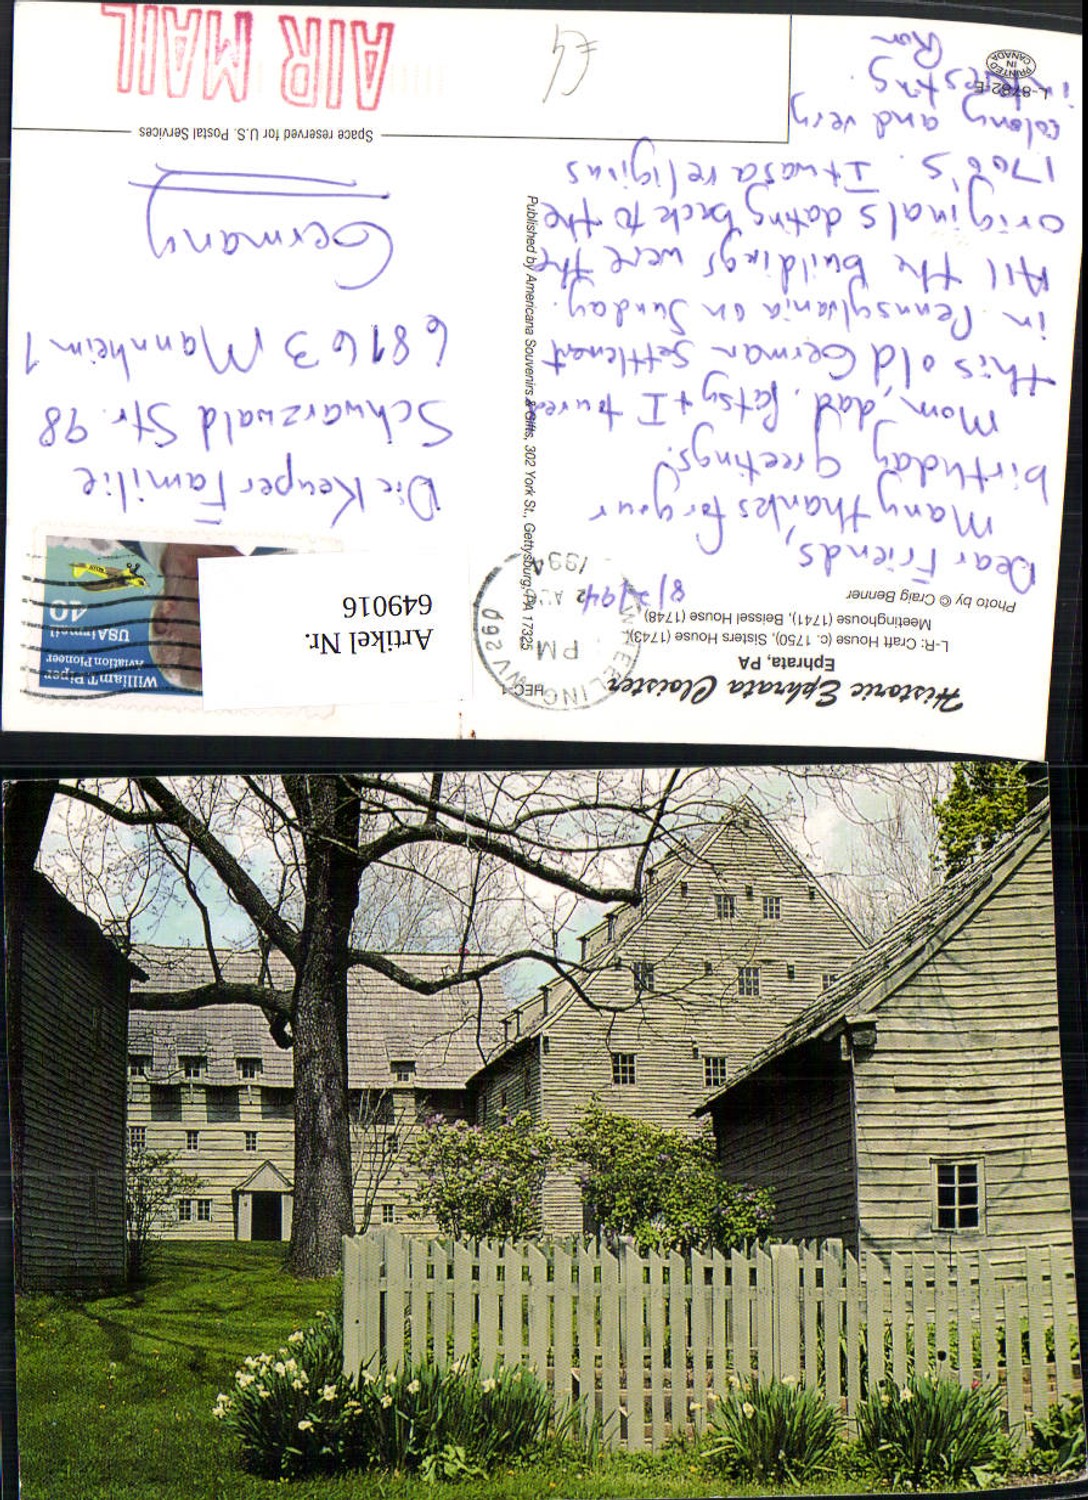 Historic Ephrata Cloister
Ephrata, PA
L-R: Craft House (c. 1750), Sisters House (1743),
Meetinghouse (1741), Beissel House (1748)
Photo by © Craig Benner
8/2/94
Dear Friends,
Many thanks for your
birthday greetings!
Mom, dad, Patsy + I toured
this old German settlement
in Pennsylvania on Sunday.
All the buildings were the
originals dating back to the
1700's. It was a religious
colony and very
interesting.
Ron
L-8782-E
PRINTED
IN
CANADA
Published by Americana Souvenirs & Gifts, 302 York St., Gettysburg, PA 17325
WHEELING WV 260
PM
2 AUG
1994
William T. Piper
Aviation Pioneer
USAirmail
40
Artikel Nr.
649016
Die Keuper Familie
Schwarzwald Str. 98
68163 Mannheim 1
Germany
Space reserved for U.S. Postal Services
AIR MAIL